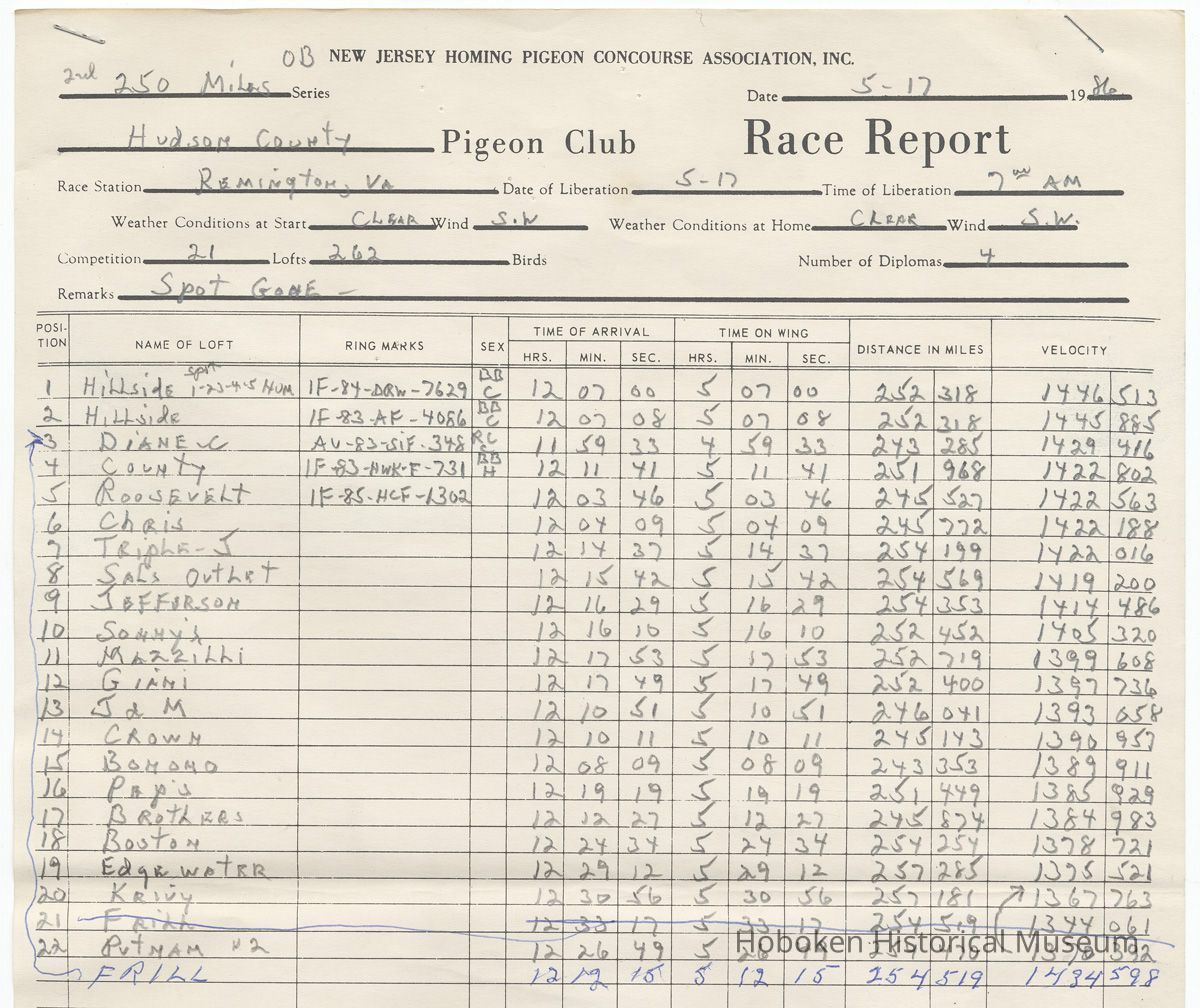 OB NEW JERSEY HOMING PIGEON CONCOURSE ASSOCIATION, INC.
2nd 250 Miles Series Date 5-17 1986
Hudson County Pigeon Club Race Report
Race Station Remington, VA Date of Liberation 5-17 Time of Liberation 7 00 AM
Weather Conditions at Start CLEAR Wind S.W Weather Conditions at Home CLEAR Wind S.W.
Competition 21 Lofts 262 Birds Number of Diplomas 4
Remarks Spot GONE -
POSITION NAME OF LOFT RING MARKS SEX TIME OF ARRIVAL TIME ON WING DISTANCE IN MILES VELOCITY
HRS. MIN. SEC. HRS. MIN. SEC.
1 Hillside spot 1-23-4-5 HUM IF-84-DRW-7629 BB C 12 07 00 5 07 00 252 318 1446 513
2 Hillside IF-83-AF-4086 BB C 12 07 08 5 07 08 252 318 1445 885
3 DIANE-C AU-83-SIF-348 RC C 11 59 33 4 59 33 243 285 1429 416
4 County IF-83-HWK-F-731 BB H 12 11 41 5 11 41 251 968 1422 802
5 ROOSEVELT IF-85-HCF-1302 12 03 46 5 03 46 245 527 1422 563
6 Chris 12 04 09 5 04 09 245 772 1422 188
7 TRIPLE-J 12 14 37 5 14 37 254 199 1422 016
8 SALS OUTLET 12 15 42 5 15 42 254 569 1419 200
9 JEFFERSON 12 16 29 5 16 29 254 353 1414 486
10 Sonny's 12 16 10 5 16 10 252 452 1405 320
11 MAZZILLI 12 17 53 5 17 53 252 719 1399 608
12 GIANI 12 17 49 5 17 49 252 400 1397 736
13 J & M 12 10 51 5 10 51 246 041 1393 058
14 CROWN 12 10 11 5 10 11 245 143 1390 957
15 BONOMO 12 08 09 5 08 09 243 353 1389 911
16 Pep's 12 19 19 5 19 19 251 449 1385 929
17 BROTHERS 12 12 27 5 12 27 245 874 1384 983
18 Boston 12 24 34 5 24 34 254 254 1378 721
19 Edgewater 12 29 12 5 29 12 257 285 1375 521
20 KRIVY 12 30 56 5 30 56 257 181 1367 763
21 FRILL 12 33 17 5 33 17 254 519 1344 061
22 PUTNAM #2 12 26 49 5 26
Hoboken Historical Museum
FRILL 12 12 15 5 12 15 254 519 1434 598